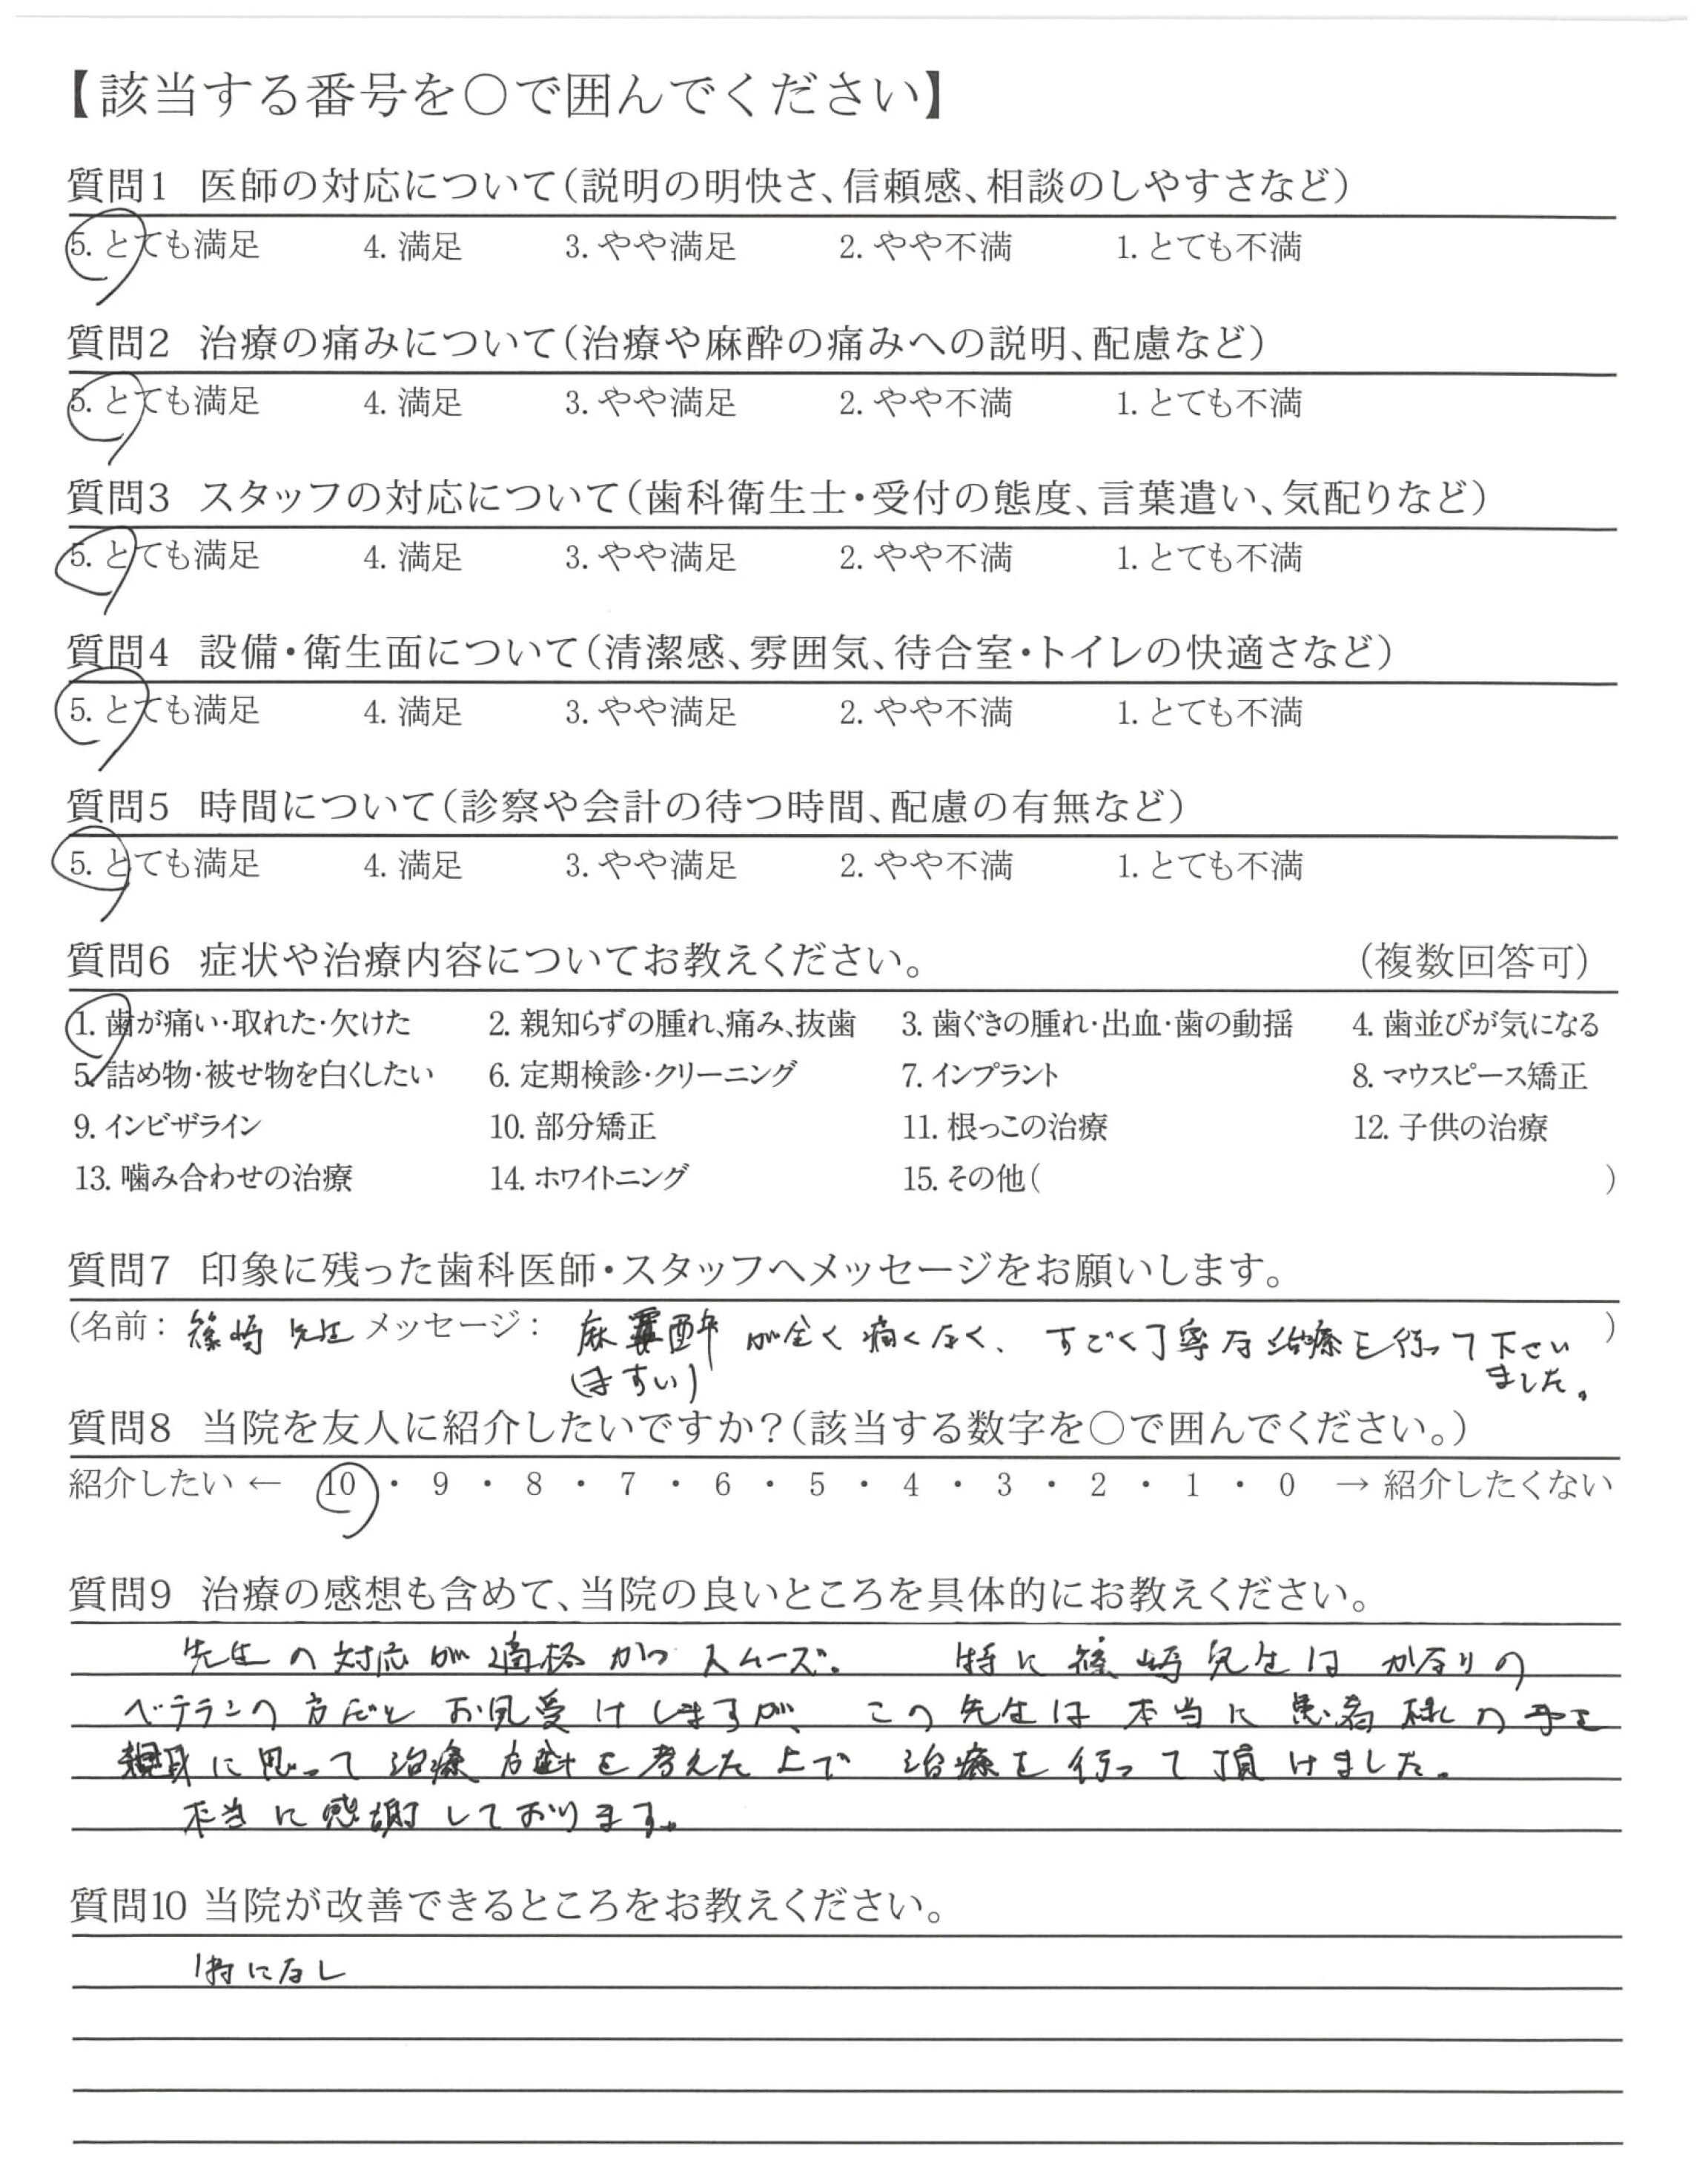 【該当する番号を○で囲んでください】
質問1 医師の対応について(説明の明快さ、信頼感、相談のしやすさなど)
5. とても満足 4. 満足 3. やや満足 2. やや不満 1. とても不満
質問2 治療の痛みについて(治療や麻酔の痛みへの説明、配慮など)
5. とても満足 4. 満足 3. やや満足 2. やや不満 1. とても不満
質問3 スタッフの対応について(歯科衛生士・受付の態度、言葉遣い、気配りなど)
5. とても満足 4. 満足 3. やや満足 2. やや不満 1. とても不満
質問4 設備・衛生面について(清潔感、雰囲気、待合室・トイレの快適さなど)
5. とても満足 4. 満足 3. やや満足 2. やや不満 1. とても不満
質問5 時間について(診察や会計の待つ時間、配慮の有無など)
5. とても満足 4. 満足 3. やや満足 2. やや不満 1. とても不満
質問6 症状や治療内容についてお教えください。 (複数回答可)
1. 歯が痛い・取れた・欠けた 2. 親知らずの腫れ、痛み、抜歯 3. 歯ぐきの腫れ・出血・歯の動揺 4. 歯並びが気になる
5. 詰め物・被せ物を白くしたい 6. 定期検診・クリーニング 7. インプラント 8. マウスピース矯正
9. インビザライン 10. 部分矯正 11. 根っこの治療 12. 子供の治療
13. 噛み合わせの治療 14. ホワイトニング 15. その他( )
質問7 印象に残った歯科医師・スタッフへメッセージをお願いします。
(名前: 篠崎先生 メッセージ: 麻酔が全く痛くなく、すごく丁寧な治療を行って下さい )
(ますい) ました。
質問8 当院を友人に紹介したいですか?(該当する数字を○で囲んでください。)
紹介したい ← 10 ・ 9 ・ 8 ・ 7 ・ 6 ・ 5 ・ 4 ・ 3 ・ 2 ・ 1 ・ 0 → 紹介したくない
質問9 治療の感想も含めて、当院の良いところを具体的にお教えください。
先生の対応が適格かつスムーズ。 特に篠崎先生はかなりの
ベテランの方だとお見受けしますが、この先生は本当に患者様の事を
親身に思って治療方針を考えた上で治療を行って頂けました。
本当に感謝しております。
質問10 当院が改善できるところをお教えください。
特になし